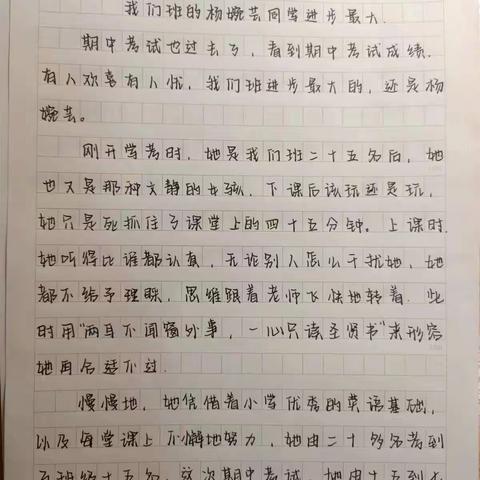 我们班的杨婉芸同学进步最大.
期中考试也过去了,看到期中考试成绩.
有人欢喜有人忧,我们班进步最大的,还是杨
婉芸。
刚开学考时,她是我们班二十五名后,她
也不是那种文静的女孩,下课后该玩还是玩,
她只是死抓住了课堂上的四十五分钟。上课时,
她听得比谁都认真,无论别人怎么干扰她,她
都不给予理睬,思维跟着老师飞快地转着.此
时用"两耳不闻窗外事,一心只读圣贤书"来形容
她再合适不过.
慢慢地,她凭借着小学优秀的英语基础,
以及每堂课上不懈地努力,她由二十多名考到
了班级十五名,这次期中考试,她由十五到